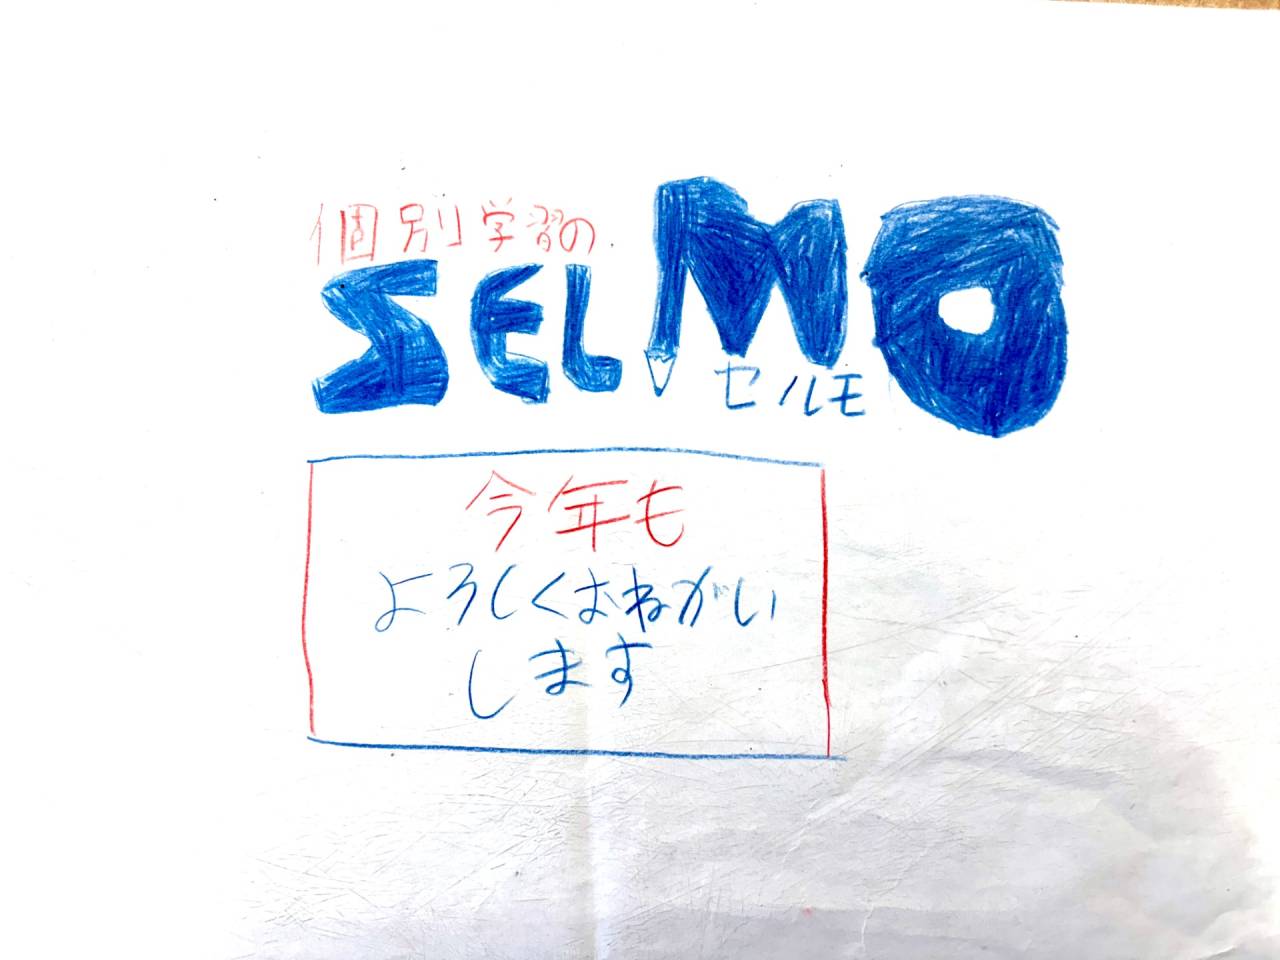 個別学習の
SELMO
セルモ
今年も
よろしくおねがい
します